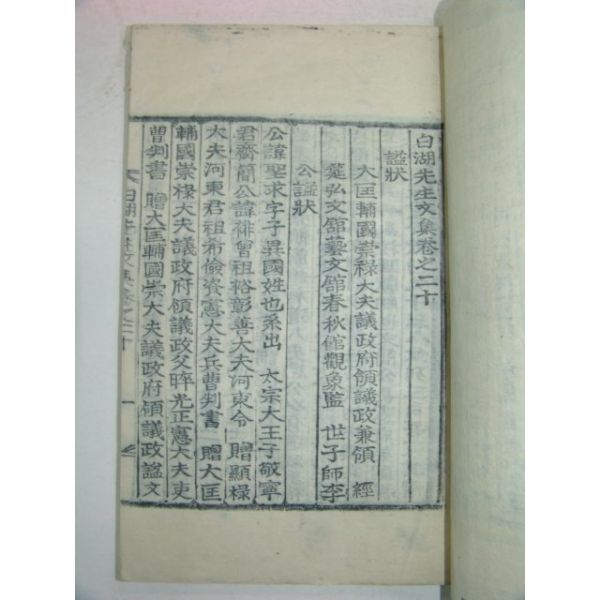 白湖先生文集卷之二十
謚狀
大匡輔國崇祿大夫議政府領議政兼領 經
筵弘文館藝文館春秋館觀象監 世子師李
公謚狀
公諱聖求字子異國姓也系出 太宗大王子敬寧
君齊簡公諱裶曾祖裕彰善大夫河東令 贈顯祿
大夫河東君祖希儉資憲大夫兵曹判書 贈大匡
輔國崇祿大夫議政府領議政父睟光正憲大夫吏
曹判書 贈大匡輔國崇大夫議政府領議政謚文
白湖先生文集卷之二十 一